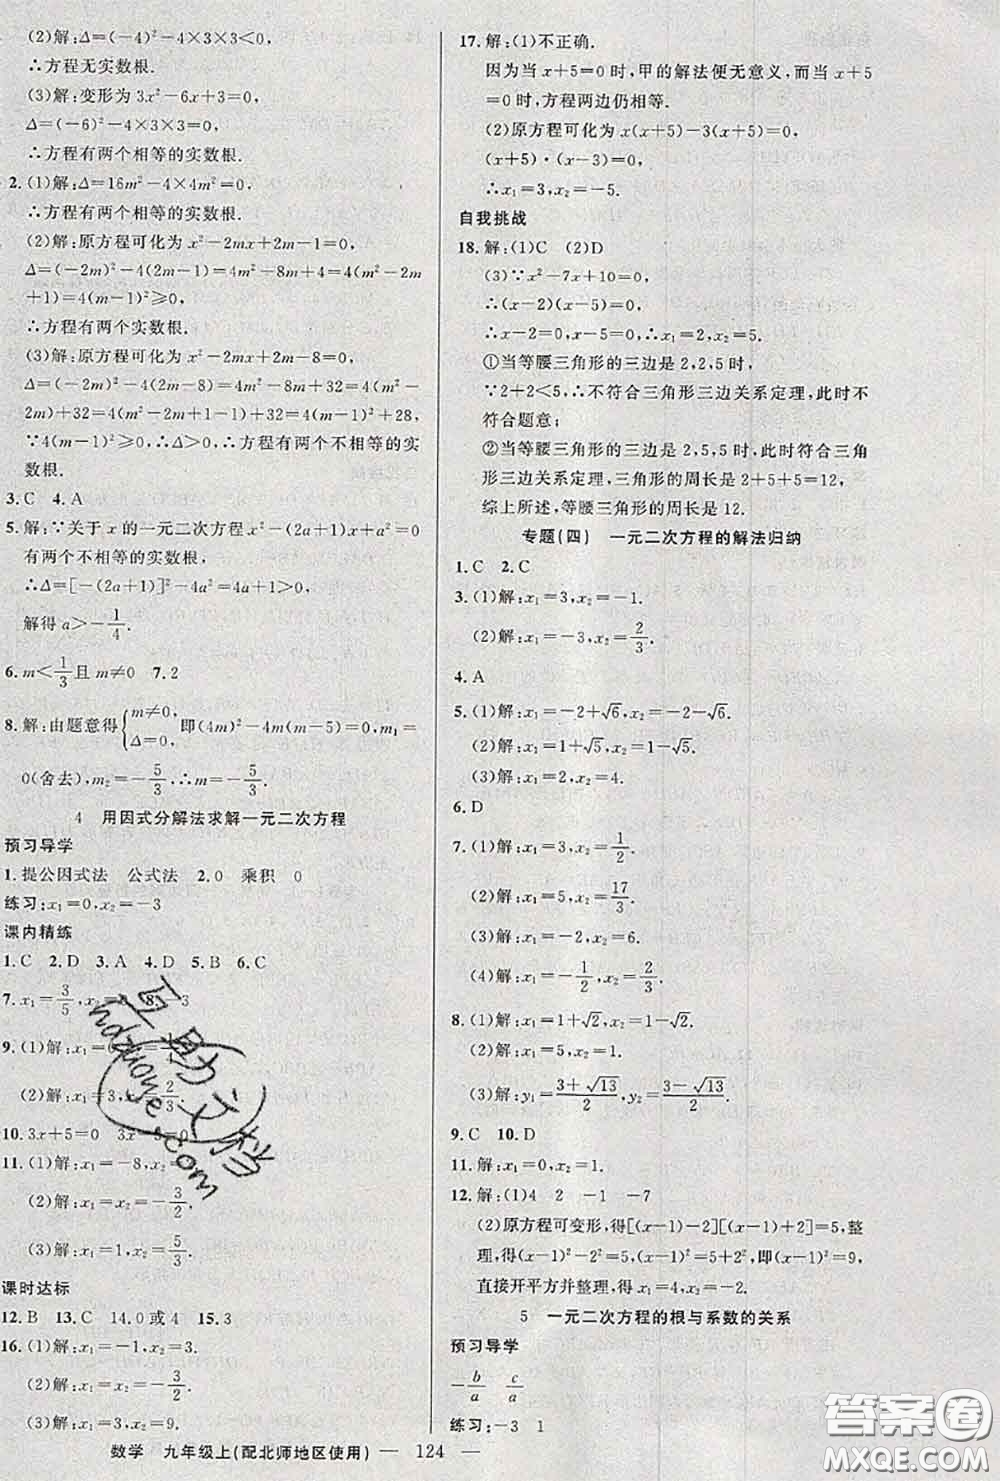 (2)解:Δ=(-4)²-4×3×3<0,
∴方程无实数根.
(3)解:变形为3x²-6x+3=0,
Δ=(-6)²-4×3×3=0,
∴方程有两个相等的实数根.
2.(1)解:Δ=16m²-4×4m²=0,
∴方程有两个相等的实数根.
(2)解:原方程可化为x²-2mx+2m-1=0,
Δ=(-2m)²-4(2m-1)=4m²-8m+4=4(m²-2m
+1)=4(m-1)²≥0,
∴方程有两个实数根.
(3)解:原方程可化为x²-2mx+2m-8=0,
Δ=(-2m)²-4(2m-8)=4m²-8m+32=4(m²-
2m)+32=4(m²-2m+1)+28=4(m-1)²+28,
∵4(m-1)²≥0,∴Δ>0,∴方程有两个不相等的实
数根.
3.C 4.A
5.解:∵关于x的一元二次方程x²-(2a+1)x+a²=0
有两个不相等的实数根,
∴Δ=[-(2a+1)]²-4a²=4a+1>0,
解得a>-1/4.
6.m<1/3且m≠0 7.2
8.解:由题意得{m≠0, Δ=0, 即(4m)²-4m(m-5)=0,m₁=
0(舍去),m₂=-5/3.∴m=-5/3.
4 用因式分解法求解一元二次方程
预习导学
1.提公因式法 公式法 2.0 乘积 0
练习:x₁=0,x₂=-3
课内精练
1.C 2.D 3.A 4.D 5.B 6.C
7.x₁=3/5,x₂= 8. 3
9.(1)解:x₁=0
(2)解:x₁= 2/3.
10.3x+5=0 3x =0
11.(1)解:x₁=-8,x₂=
(2)解:x₁=x₂=-3/2.
(3)解:x₁=1,x₂=5/3.
课时达标
12.B 13.C 14.0或4 15.3
16.(1)解:x₁=-1,x₂=3.
(2)解:x₁=x₂=-3/2.
(3)解:x₁=3,x₂=9.
数学 九年级上(配北师地区使用) — 124 —
17.解:(1)不正确.
因为当x+5=0时,甲的解法便无意义,而当x+5
=0时,方程两边仍相等.
(2)原方程可化为x(x+5)-3(x+5)=0,
(x+5)·(x-3)=0,
∴x₁=3,x₂=-5.
自我挑战
18.解:(1)C (2)D
(3)∵x²-7x+10=0,
∴(x-2)(x-5)=0,
∴x-2=0,x-5=0,∴x₁=2,x₂=5.
①当等腰三角形的三边是2,2,5时,
∵2+2<5,∴不符合三角形三边关系定理,此时不
符合题意;
②当等腰三角形的三边是2,5,5时,此时符合三角
形三边关系定理,三角形的周长是2+5+5=12,
综上所述,等腰三角形的周长是12.
专题(四) 一元二次方程的解法归纳
1.C 2.C
3.(1)解:x₁=3,x₂=-1.
(2)解:x₁=-3,x₂=2/3.
4.A
5.(1)解:x₁=-2+√6,x₂=-2-√6.
(2)解:x₁=1+√5,x₂=1-√5.
(3)解:x₁=4,x₂=2.
6.D
7.(1)解:x₁=3,x₂=1/2.
(2)解:x₁=5,x₂=17/3.
(3)解:x₁=-2,x₂=6.
(4)解:x₁=-2/3,x₂=2/3.
8.(1)解:x₁=1+√2,x₂=1-√2.
(2)解:x₁=5,x₂=0.
(3)解:y₁=(3+√13)/2,y₂=(3-√13)/2.
9.C 10.D
11.解:x₁=0,x₂=1.
12.解:(1)4 2 -1 -7
(2)原方程可变形,得[(x-1)-2][(x-1)+2]=5,整
理,得(x-1)²-2²=5,(x-1)²=5+2²,即(x-1)²=9,
直接开平方并整理,得x₁=4,x₂=-2.
5 一元二次方程的根与系数的关系
预习导学
-b/a c/a
练习:-3 1
互助文档
hdzuoye.com
答案圈
MXQE.COM